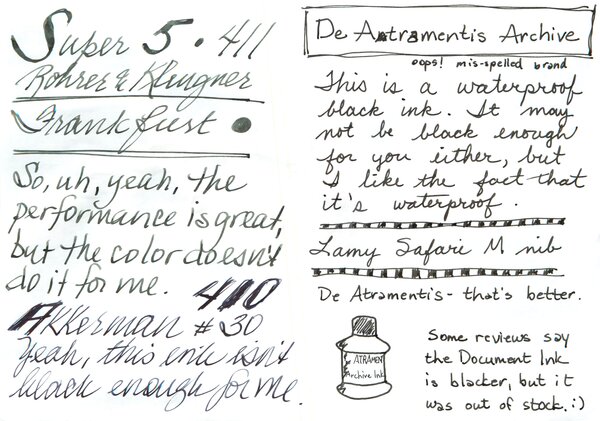 Super 5 • 411
Rohrer & Klingner
Frankfurt •
So, uh, yeah, the
performance is great,
but the color doesn't
do it for me. 410
AKKerman # 30
Yeah, this ink isn't
black enough for me.
De Artramentis Archive
oops! mis-spelled brand
This is a waterproof
black ink. It may
not be black enough
for you either, but
I like the fact that
it's waterproof.
Lamy Safari M nib
De Atramentis - that's better.
ATRAMENT
Archive Ink
Some reviews say
the Document Ink
is blacker, but it
was out of stock. :)